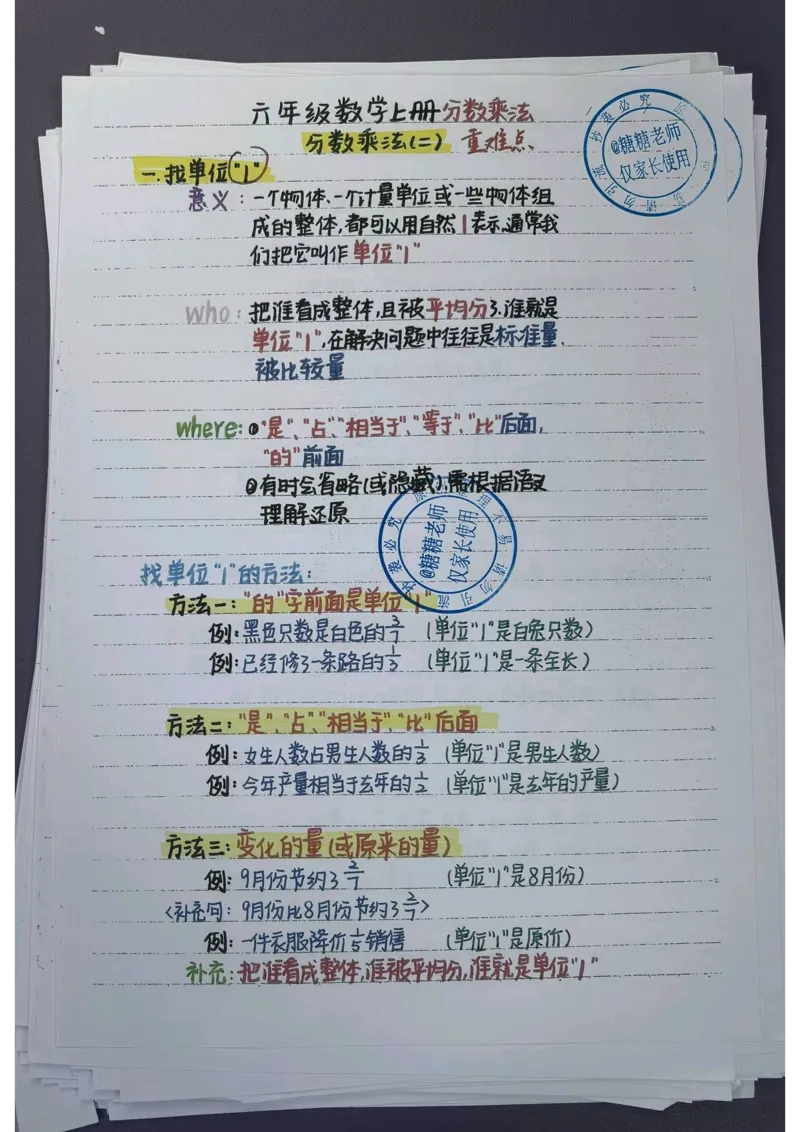 六年级数学上册分数乘法
分数乘法(二) 重难点、
一.找单位"1"
意义：一个物体、一个计量单位或一些物体组
成的整体,都可以用自然1表示,通常我
们把它叫作单位"1"
who：把谁看成整体,且被平均分了.谁就是
单位"1",在解决问题中往往是标准量、
被比较量
where:①"是"、"占"、"相当于"、"等于"、"比"后面,
"的"前面
②有时会省略(或隐藏),需根据语义
理解还原
找单位"1"的方法:
方法一："的"字前面是单位"1"
例:黑色只数是白色的2/7 (单位"1"是白兔只数)
例:已经修了一条路的1/3 (单位"1"是一条全长)
方法二："是"、"占"、"相当于"、"比"后面
例:女生人数占男生人数的1/3 (单位"1"是男生人数)
例:今年产量相当于去年的1/2 (单位"1"是去年的产量)
方法三：变化的量(或原来的量)
例:9月份节约了2/7 (单位"1"是8月份)
<补充句:9月份比8月份节约了2/7>
例:一件衣服降价1/5销售 (单位"1"是原价)
补充:把谁看成整体,谁被平均分,谁就是单位"1"
@糖糖老师
仅家长使用
抄袭必究
请勿引流
@糖糖老师
仅家长使用
抄袭必究
整理不易
请勿引流